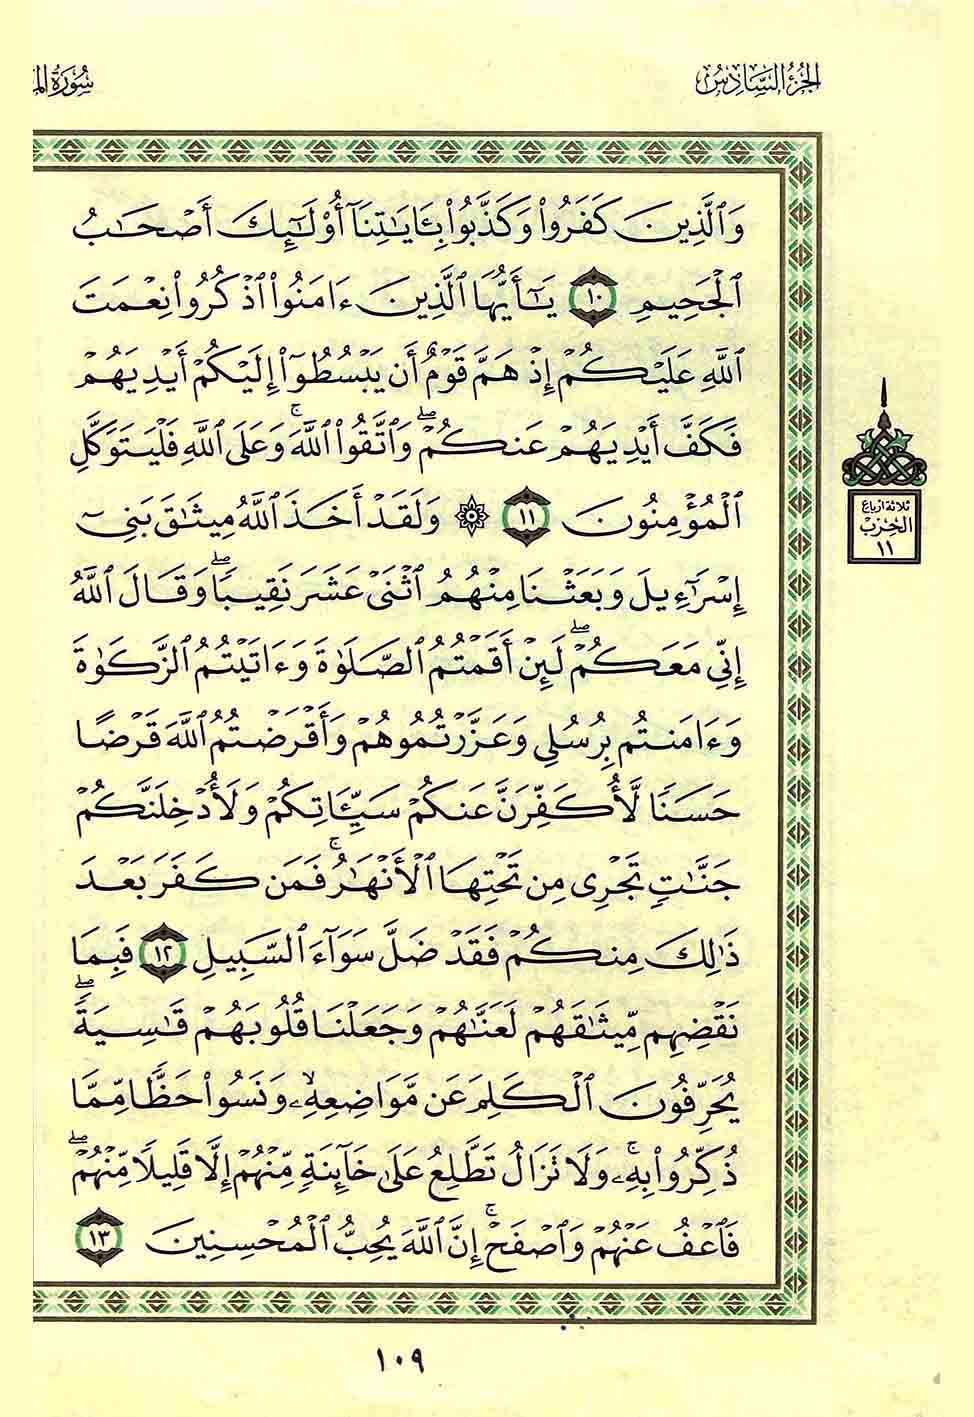 الجزء السادس
سورة الم
وَٱلَّذِينَ كَفَرُوا۟ وَكَذَّبُوا۟ بِـَٔايَـٰتِنَآ أُو۟لَـٰٓئِكَ أَصْحَـٰبُ
ٱلْجَحِيمِ ١٠ يَـٰٓأَيُّهَا ٱلَّذِينَ ءَامَنُوا۟ ٱذْكُرُوا۟ نِعْمَتَ
ٱللَّهِ عَلَيْكُمْ إِذْ هَمَّ قَوْمٌ أَن يَبْسُطُوٓا۟ إِلَيْكُمْ أَيْدِيَهُمْ
فَكَفَّ أَيْدِيَهُمْ عَنكُمْ ۖ وَٱتَّقُوا۟ ٱللَّهَ ۚ وَعَلَى ٱللَّهِ فَلْيَتَوَكَّلِ
ٱلْمُؤْمِنُونَ ١١ ۞ وَلَقَدْ أَخَذَ ٱللَّهُ مِيثَـٰقَ بَنِىٓ
إِسْرَٰٓءِيلَ وَبَعَثْنَا مِنْهُمُ ٱثْنَىْ عَشَرَ نَقِيبًا ۖ وَقَالَ ٱللَّهُ
إِنِّى مَعَكُمْ ۖ لَئِنْ أَقَمْتُمُ ٱلصَّلَوٰةَ وَءَاتَيْتُمُ ٱلزَّكَوٰةَ
وَءَامَنتُم بِرُسُلِى وَعَزَّرْتُمُوهُمْ وَأَقْرَضْتُمُ ٱللَّهَ قَرْضًا
حَسَنًا لَّأُكَفِّرَنَّ عَنكُمْ سَيِّـَٔاتِكُمْ وَلَأُدْخِلَنَّكُمْ
جَنَّـٰتٍ تَجْرِى مِن تَحْتِهَا ٱلْأَنْهَـٰرُ ۚ فَمَن كَفَرَ بَعْدَ
ذَٰلِكَ مِنكُمْ فَقَدْ ضَلَّ سَوَآءَ ٱلسَّبِيلِ ١٢ فَبِمَا
نَقْضِهِم مِّيثَـٰقَهُمْ لَعَنَّـٰهُمْ وَجَعَلْنَا قُلُوبَهُمْ قَـٰسِيَةً ۖ
يُحَرِّفُونَ ٱلْكَلِمَ عَن مَّوَاضِعِهِۦ ۙ وَنَسُوا۟ حَظًّا مِّمَّا
ذُكِّرُوا۟ بِهِۦ ۚ وَلَا تَزَالُ تَطَّلِعُ عَلَىٰ خَآئِنَةٍ مِّنْهُمْ إِلَّا قَلِيلًا مِّنْهُمْ ۖ
فَٱعْفُ عَنْهُمْ وَٱصْفَحْ ۚ إِنَّ ٱللَّهَ يُحِبُّ ٱلْمُحْسِنِينَ ١٣
ثلاثة أرباع
الحزب
١١
١٠٩